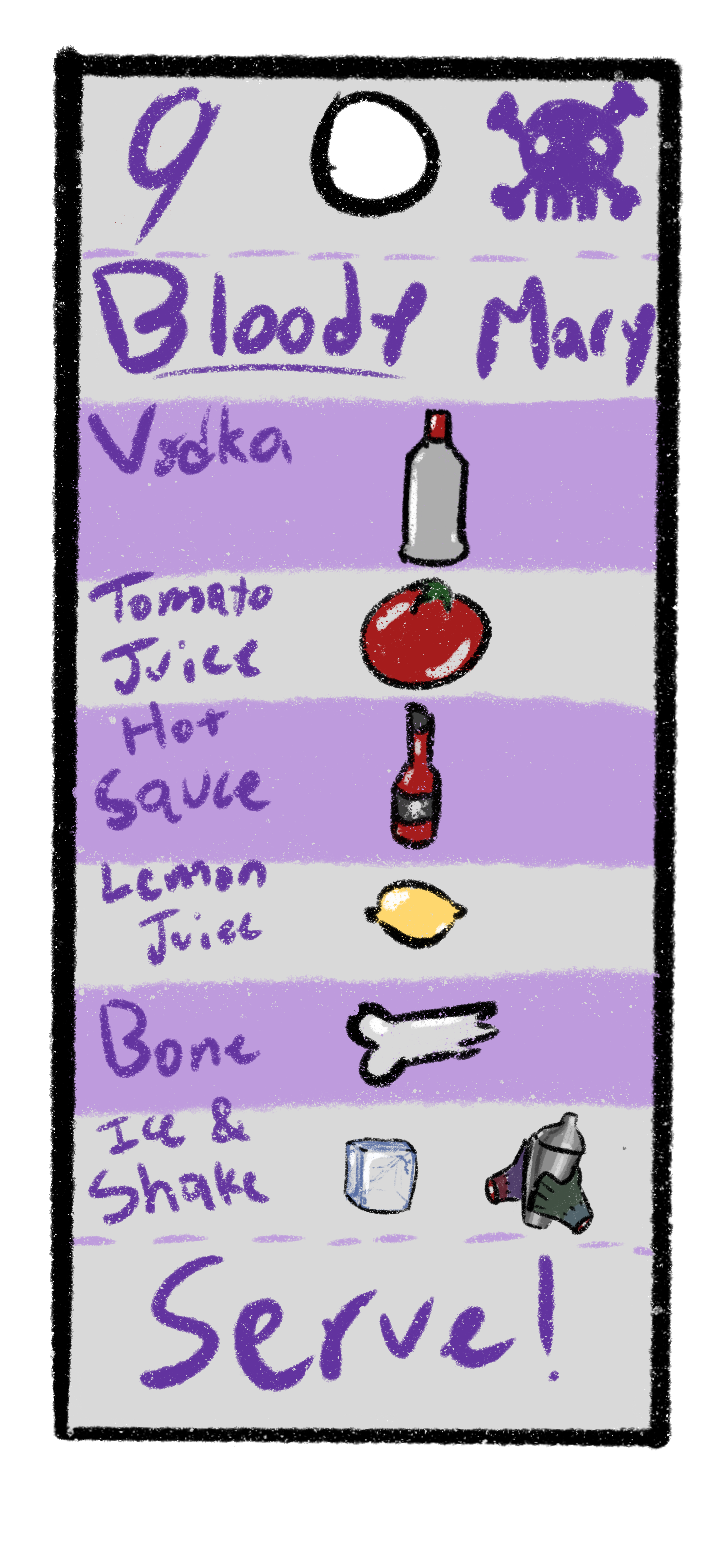 9
Bloody Mary
Vodka
Tomato
Juice
Hot
Sauce
Lemon
Juice
Bone
Ice &
Shake
Serve!